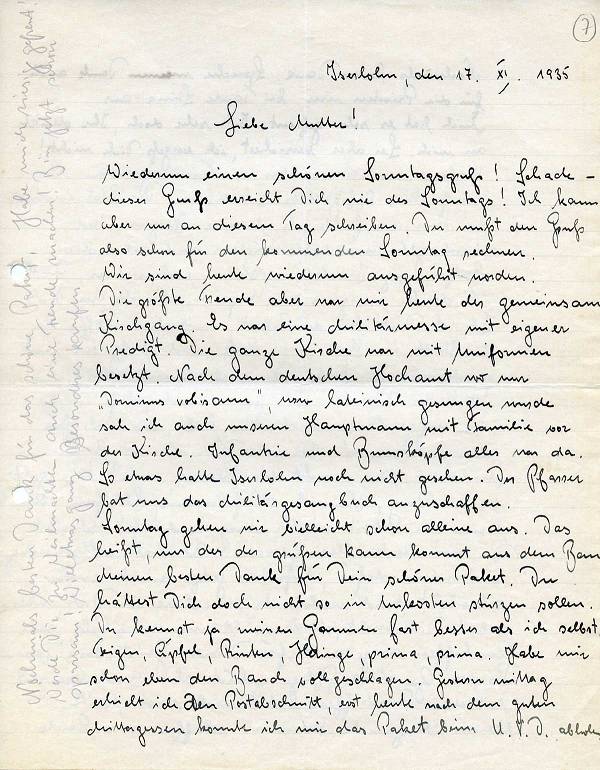 7
Iserlohn, den 17. XI. 1935
Liebe Mutter!
Wiederum einen schönen Sonntagsgruß! Schade –
dieser Gruß erreicht Dich nie des Sonntags! Ich kann
aber nur an diesem Tag schreiben. Du mußt den Gruß
also schon für den kommenden Sonntag rechnen.
Wir sind heute wiederum ausgeführt worden.
Die größte Freude aber war mir heute der gemeinsam
Kirchgang. Es war eine Militärmesse mit eigener
Predigt. Die ganze Kirche war mit Uniformen
besetzt. Nach dem deutschen Hochamt wo nur
„Dominus vobiscum", usw lateinisch gesungen wurde
sah ich auch unseren Hauptmann mit Familie vor
der Kirche. Infantrie und Bumsköpfe alles war da.
So etwas hatte Iserlohn noch nicht gesehen. Der Pfarrer
bat uns das Militärgesangbuch anzuschaffen.
Sonntag gehen wir vielleicht schon alleine aus. Das
heißt, nur der der grüßen kann kommt aus dem Bau
Meinen besten Dank für Dein schönes Paket. Du
hättest Dich doch nicht so in Unkosten stürzen sollen.
Du kennst ja meinen Gaumen fast besser als ich selbst,
Feigen, Äpfel, Printen, Heringe, prima, prima. Habe mir
schon eben den Bauch vollgeschlagen. Gestern mittag
erhielt ich den Postabschnitt, erst heute nach dem guten
Mittagessen konnte ich mir das Paket beim U.v.D. abholen
Nochmals besten Dank für das schöne Paket. Habe mich riesig gefreut!
Werde Dir zu Weihnachten auch eine Freude machen! Bin jetzt schon
sparsam! Besonderes kaufen